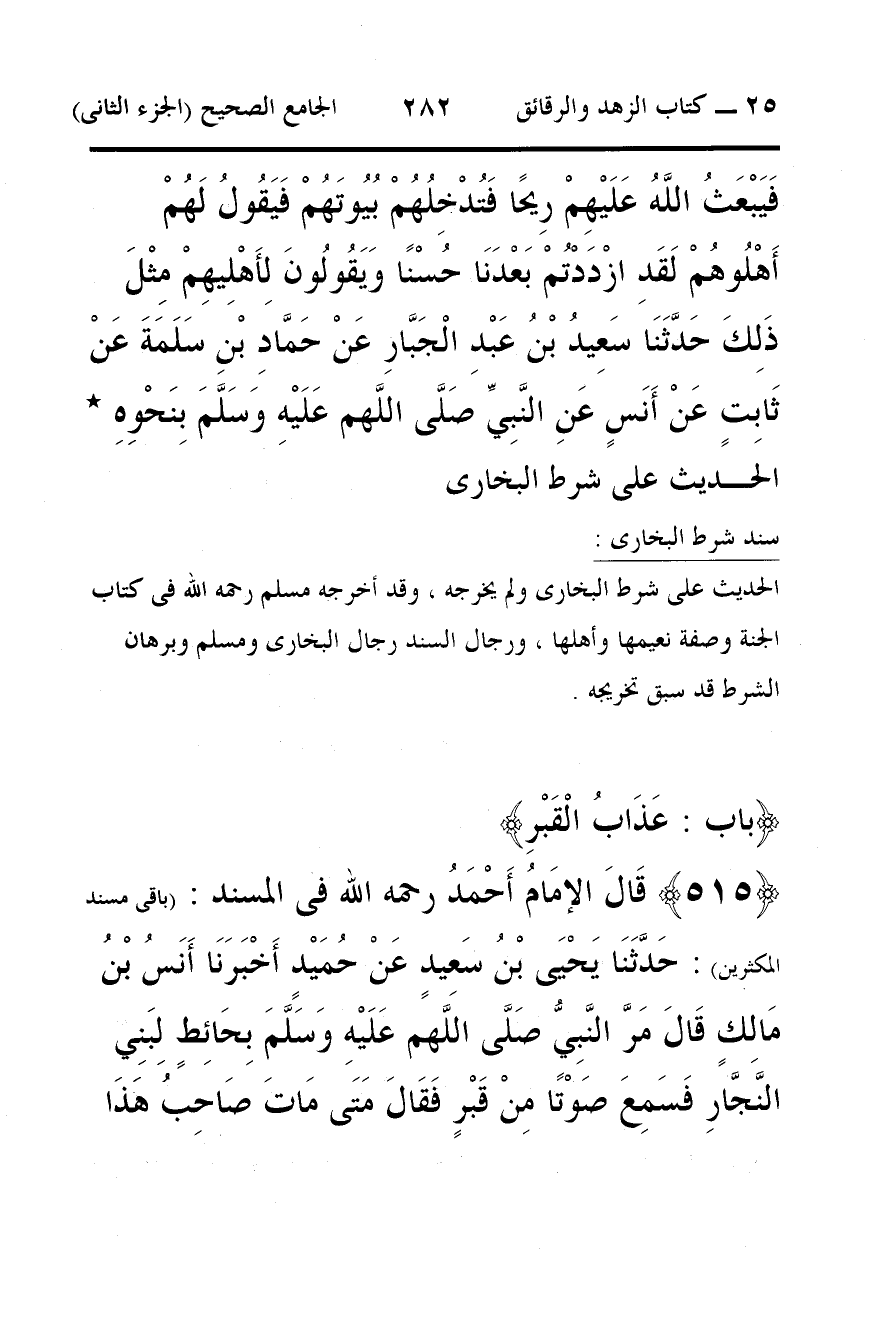 ٢٥ ــ كتاب الزهد والرقائق ٢٨٢ الجامع الصحيح (الجزء الثانى)
فَيَبْعَثُ اللَّهُ عَلَيْهِمْ رِيحًا فَتُدْخِلُهُمْ بُيُوتَهُمْ فَيَقُولُ لَهُمْ
أَهْلُوهُمْ لَقَدِ ازْدَدْتُمْ بَعْدَنَا حُسْنًا وَيَقُولُونَ لِأَهْلِيهِمْ مِثْلَ
ذَلِكَ حَدَّثَنَا سَعِيدُ بْنُ عَبْدِ الْجَبَّارِ عَنْ حَمَّادِ بْنِ سَلَمَةَ عَنْ
ثَابِتٍ عَنْ أَنَسٍ عَنِ النَّبِيِّ صَلَّى اللَّهم عَلَيْهِ وَسَلَّمَ بِنَحْوِهِ ★
الحـــديث على شرط البخارى
سند شرط البخارى :
الحديث على شرط البخارى ولم يخرجه ، وقد أخرجه مسلم رحمه الله فى كتاب
الجنة وصفة نعيمها وأهلها ، ورجال السند رجال البخارى ومسلم وبرهان
الشرط قد سبق تخريجه .
﴿باب : عَذَابُ الْقَبْرِ﴾
﴿٥١٥﴾ قَالَ الإمَامُ أَحْمَدُ رحمه الله فى المسند : (باقى مسند
المكثرين) : حَدَّثَنَا يَحْيَى بْنُ سَعِيدٍ عَنْ حُمَيْدٍ أَخْبَرَنَا أَنَسُ بْنُ
مَالِكٍ قَالَ مَرَّ النَّبِيُّ صَلَّى اللَّهم عَلَيْهِ وَسَلَّمَ بِحَائِطٍ لِبَنِي
النَّجَّارِ فَسَمِعَ صَوْتًا مِنْ قَبْرٍ فَقَالَ مَتَى مَاتَ صَاحِبُ هَذَا